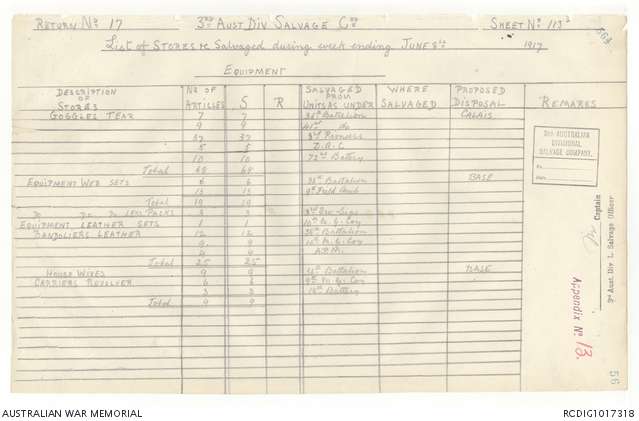 RETURN No 17 3RD AUST DIV SALVAGE COY SHEET No 113
List of STORES &c Salvaged during week ending JUNE 8th 1917
EQUIPMENT
DESCRIPTION OF STORES No OF ARTICLES S R SALVAGED FROM UNITS AS UNDER WHERE SALVAGED PROPOSED DISPOSAL REMARKS
GOGGLES TEAR 7 7 Battalion CALAIS
9 9 41st do
37 37 3rd Pioneers
5 5 D.A.C.
10 10 Battery
Total 68 68
EQUIPMENT WEB SETS 6 6 Battalion BASE
13 13 9th Field Amb
Total 19 19
Do Do Do LESS PACKS 3 3 3rd Div Sigs
EQUIPMENT LEATHER SETS 1 1 10th M.G. Coy
BANDOLIERS LEATHER 12 12 Battalion
9 9 10th M.G. Coy
4 4 A.P.M.
Total 25 25
HOUSE WIVES 9 9 Battalion BASE
CARRIERS REVOLVER 6 6 9th M.G. Coy
3 3 Battery
Total 9 9
3RD AUSTRALIAN
DIVISIONAL
SALVAGE COMPANY.
Captain
3rd Aust. Div l. Salvage Officer
Appendix No 13.
56
AUSTRALIAN WAR MEMORIAL RCDIG1017318